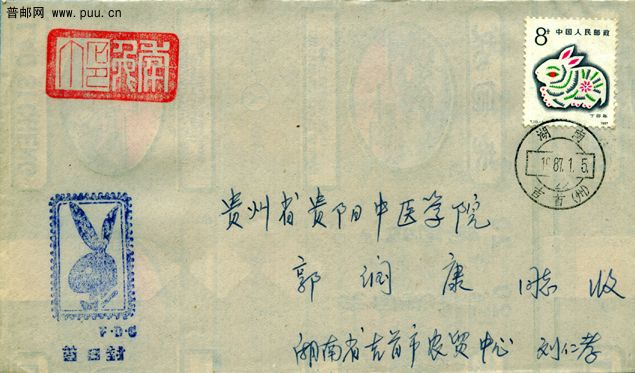 普邮网 www.puu.cn
8分 中国人民邮政
丁卯年
湖南
1987.1.5
吉首(州)
贵州省贵阳中医学院
郭润康 同志 收
湖南省吉首市农贸中心 刘仁孝
F·D·C
首日封